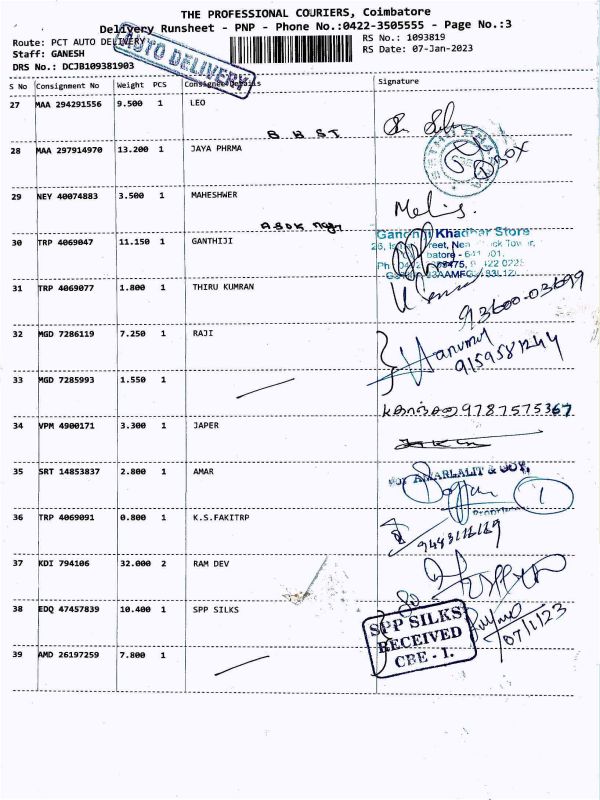 THE PROFESSIONAL COURIERS, Coimbatore
Delivery Runsheet - PNP - Phone No.:0422-3505555 - Page No.:3
Route: PCT AUTO DELIVERY
RS No.: 1093819
Staff: GANESH
RS Date: 07-Jan-2023
DRS No.: DCJB109381903
AUTO DELIVERY
S No Consignment No Weight PCS Consignee Details Signature
27 MAA 294291556 9.500 1 LEO
B H S T
28 MAA 297914970 13.200 1 JAYA PHRMA
BOX
29 NEY 40074883 3.500 1 MAHESHWER
30 TRP 4069047 11.150 1 GANTHIJI
Gandhiji Khadhar Store
31 TRP 4069077 1.800 1 THIRU KUMRAN
93600-03699
32 MGD 7286119 7.250 1 RAJI
9159581244
33 MGD 7285993 1.550 1
9787575367
34 VPM 4900171 3.300 1 JAPER
35 SRT 14853837 2.800 1 AMAR
For AMARLALIT & COY.
1
Proprietor
36 TRP 4069091 0.800 1 K.S.FAKITRP
37 KDI 794106 32.000 2 RAM DEV
38 EDQ 47457839 10.400 1 SPP SILKS
SPP SILKS
RECEIVED
CBE - 1.
07/1/23
39 AMD 26197259 7.800 1